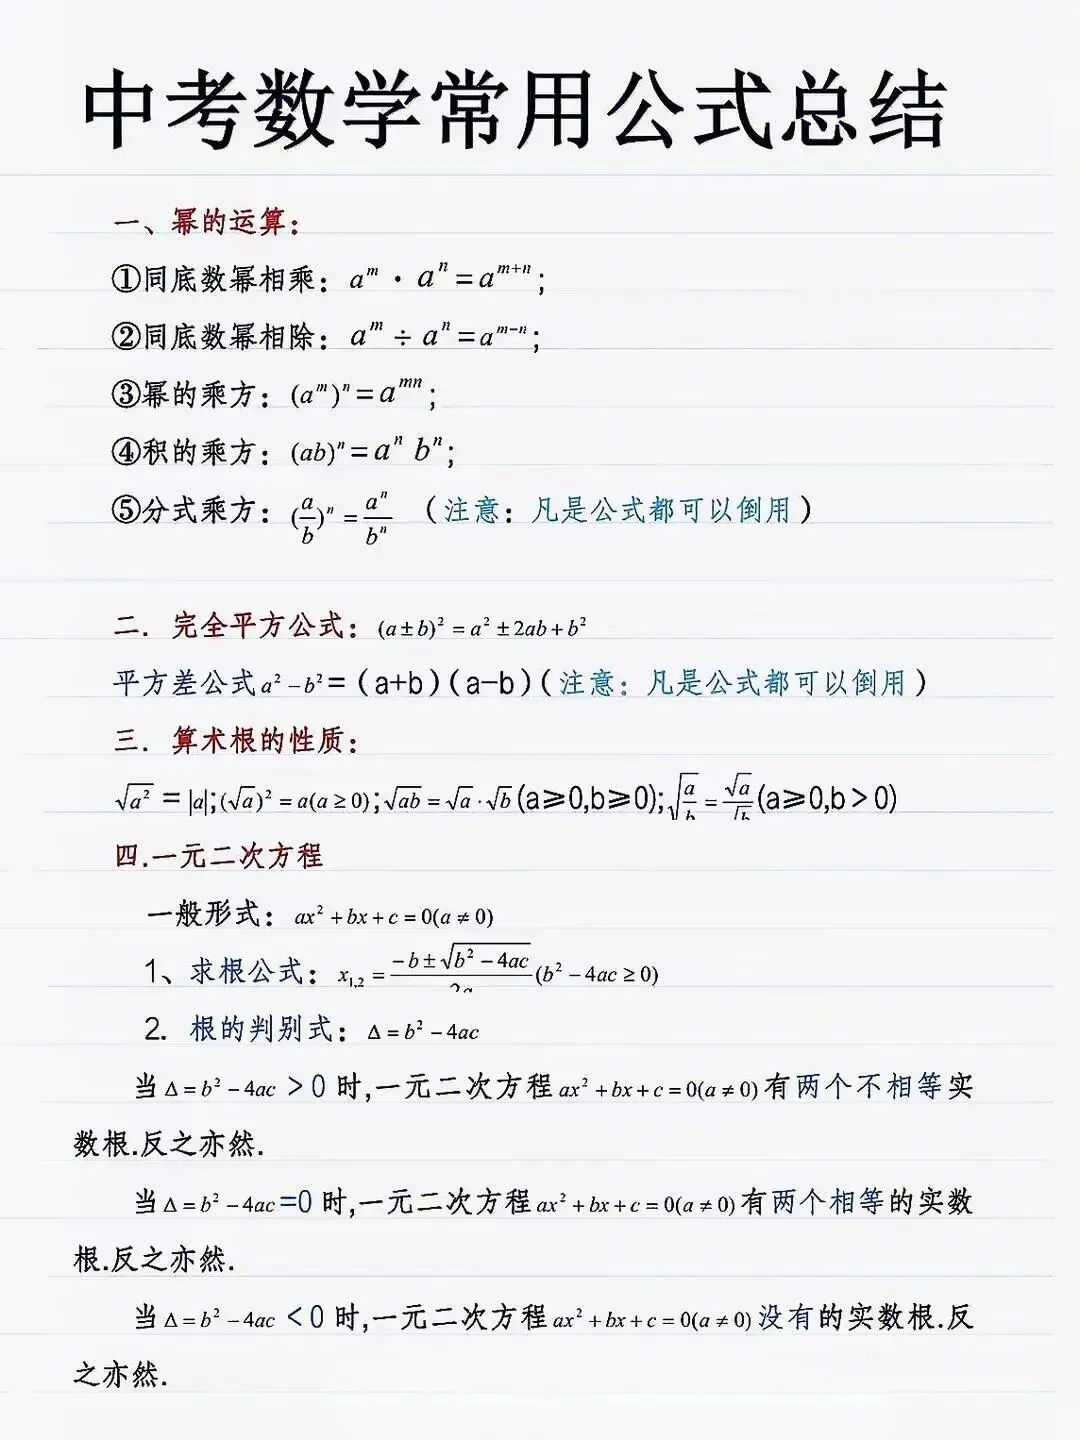 中考数学常用公式总结
一、幂的运算：
①同底数幂相乘：a^m · a^n = a^{m+n}；
②同底数幂相除：a^m ÷ a^n = a^{m−n}；
③幂的乘方：(a^m)^n = a^{mn}；
④积的乘方：(ab)^n = a^n b^n；
⑤分式乘方：(a/b)^n = a^n/b^n （注意：凡是公式都可以倒用）
二．完全平方公式：(a±b)² = a² ± 2ab + b²
平方差公式 a² − b² =（a+b）（a−b）（注意：凡是公式都可以倒用）
三．算术根的性质：
√a² = |a|;(√a)² = a(a ≥ 0);√ab = √a · √b (a≥0,b≥0);√(a/b) = √a/√b (a≥0,b＞0)
四.一元二次方程
一般形式：ax² + bx + c = 0(a ≠ 0)
1、求根公式：x_{1,2} = (−b ± √(b² − 4ac))/2a (b² − 4ac ≥ 0)
2. 根的判别式：Δ = b² − 4ac
当 Δ = b² − 4ac ＞0 时,一元二次方程 ax² + bx + c = 0(a ≠ 0) 有两个不相等实
数根.反之亦然.
当 Δ = b² − 4ac =0 时,一元二次方程 ax² + bx + c = 0(a ≠ 0) 有两个相等的实数
根.反之亦然.
当 Δ = b² − 4ac ＜0 时,一元二次方程 ax² + bx + c = 0(a ≠ 0) 没有的实数根.反
之亦然.